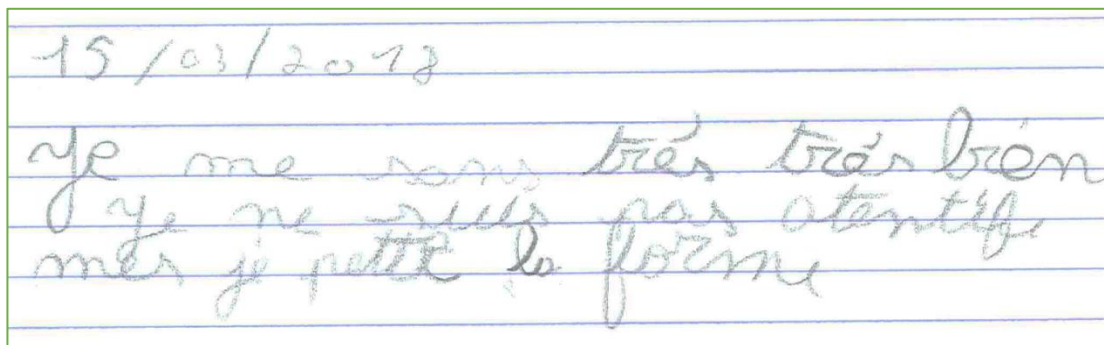 15/03/2018
Je me sans trés trés bien
Je ne suis pas atentife
mes je petite la forme